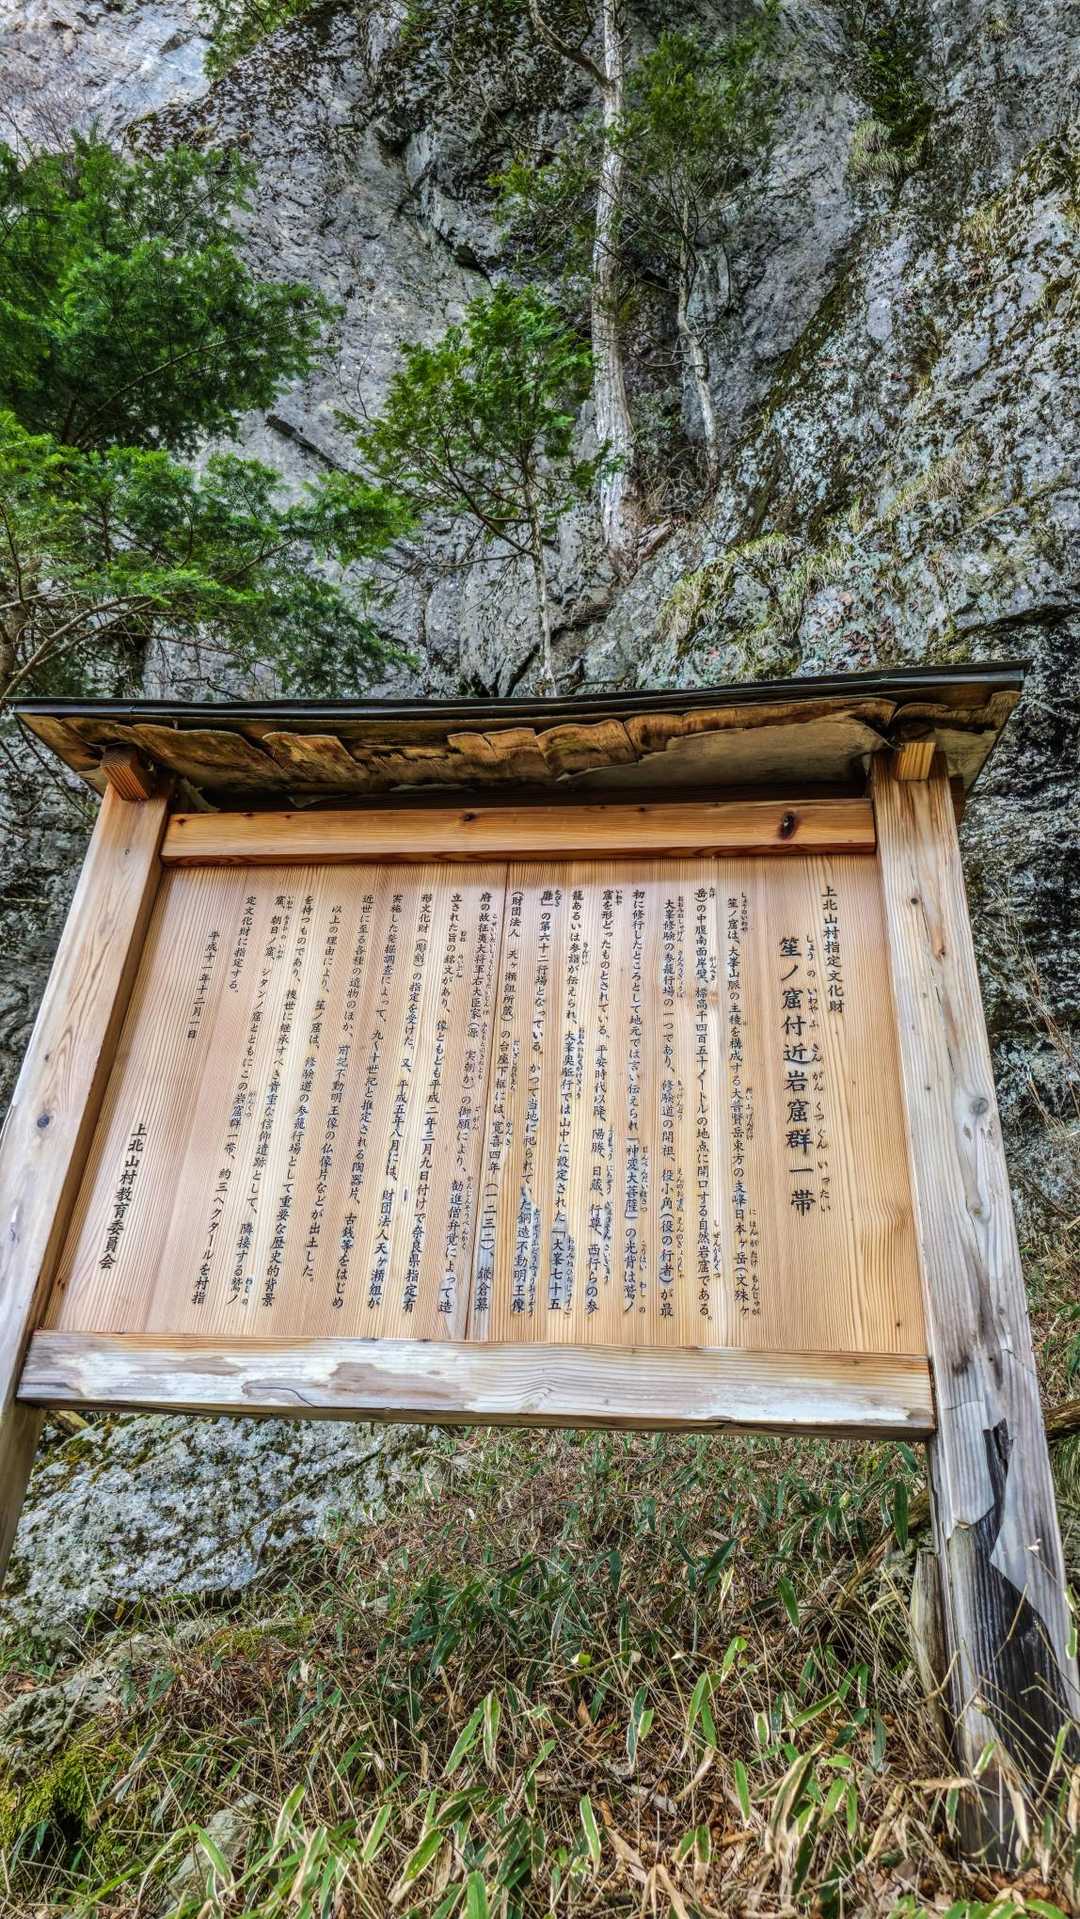 上北山村指定文化財
笙ノ窟付近岩窟群一帯
しょう の いわやふ きん がん くつ ぐん いったい
笙ノ窟は、大峯山脈の主稜を構成する大普賢岳東方の支峰日本ヶ岳(文殊ヶ
岳)の中腹南面岸壁、標高千四百五十メートルの地点に開口する自然岩窟である。
大峯修験の参籠行場の一つであり、修験道の開祖、役小角(役の行者)が最
初に修行したところとして地元では言い伝えられ「神変大菩薩」の光背は鷲ノ
窟を形どったものとされている。平安時代以降、陽勝、日蔵、行尊、西行らの参
籠あるいは参詣が伝えられ、大峯奥駈行では山中に設定された「大峯七十五
靡」の第六十二行場となっている。かつて当地に祀られていた銅造不動明王像
(財団法人 天ヶ瀬組所蔵)の台座下框には、寛喜四年(一二三二)、鎌倉幕
府の故征夷大将軍右大臣家(源 実朝か)の御願により、勧進僧弁覚によって造
立された旨の銘文があり、像ともども平成二年三月九日付けで奈良県指定有
形文化財(彫刻)の指定を受けた。又、平成五年八月には、財団法人天ヶ瀬組が
実施した発掘調査によって、九〜十世紀と推定される陶器片、古銭等をはじめ
近世に至る各種の遺物のほか、前記不動明王像の仏像片などが出土した。
以上の理由により、笙ノ窟は、修験道の参籠行場として重要な歴史的背景
を持つものであり、後世に継承すべき貴重な信仰遺跡として、隣接する鷲ノ
窟、朝日ノ窟、シタンノ窟とともにこの岩窟群一帯、約三ヘクタールを村指
定文化財に指定する。
平成十一年十二月一日
上北山村教育委員会